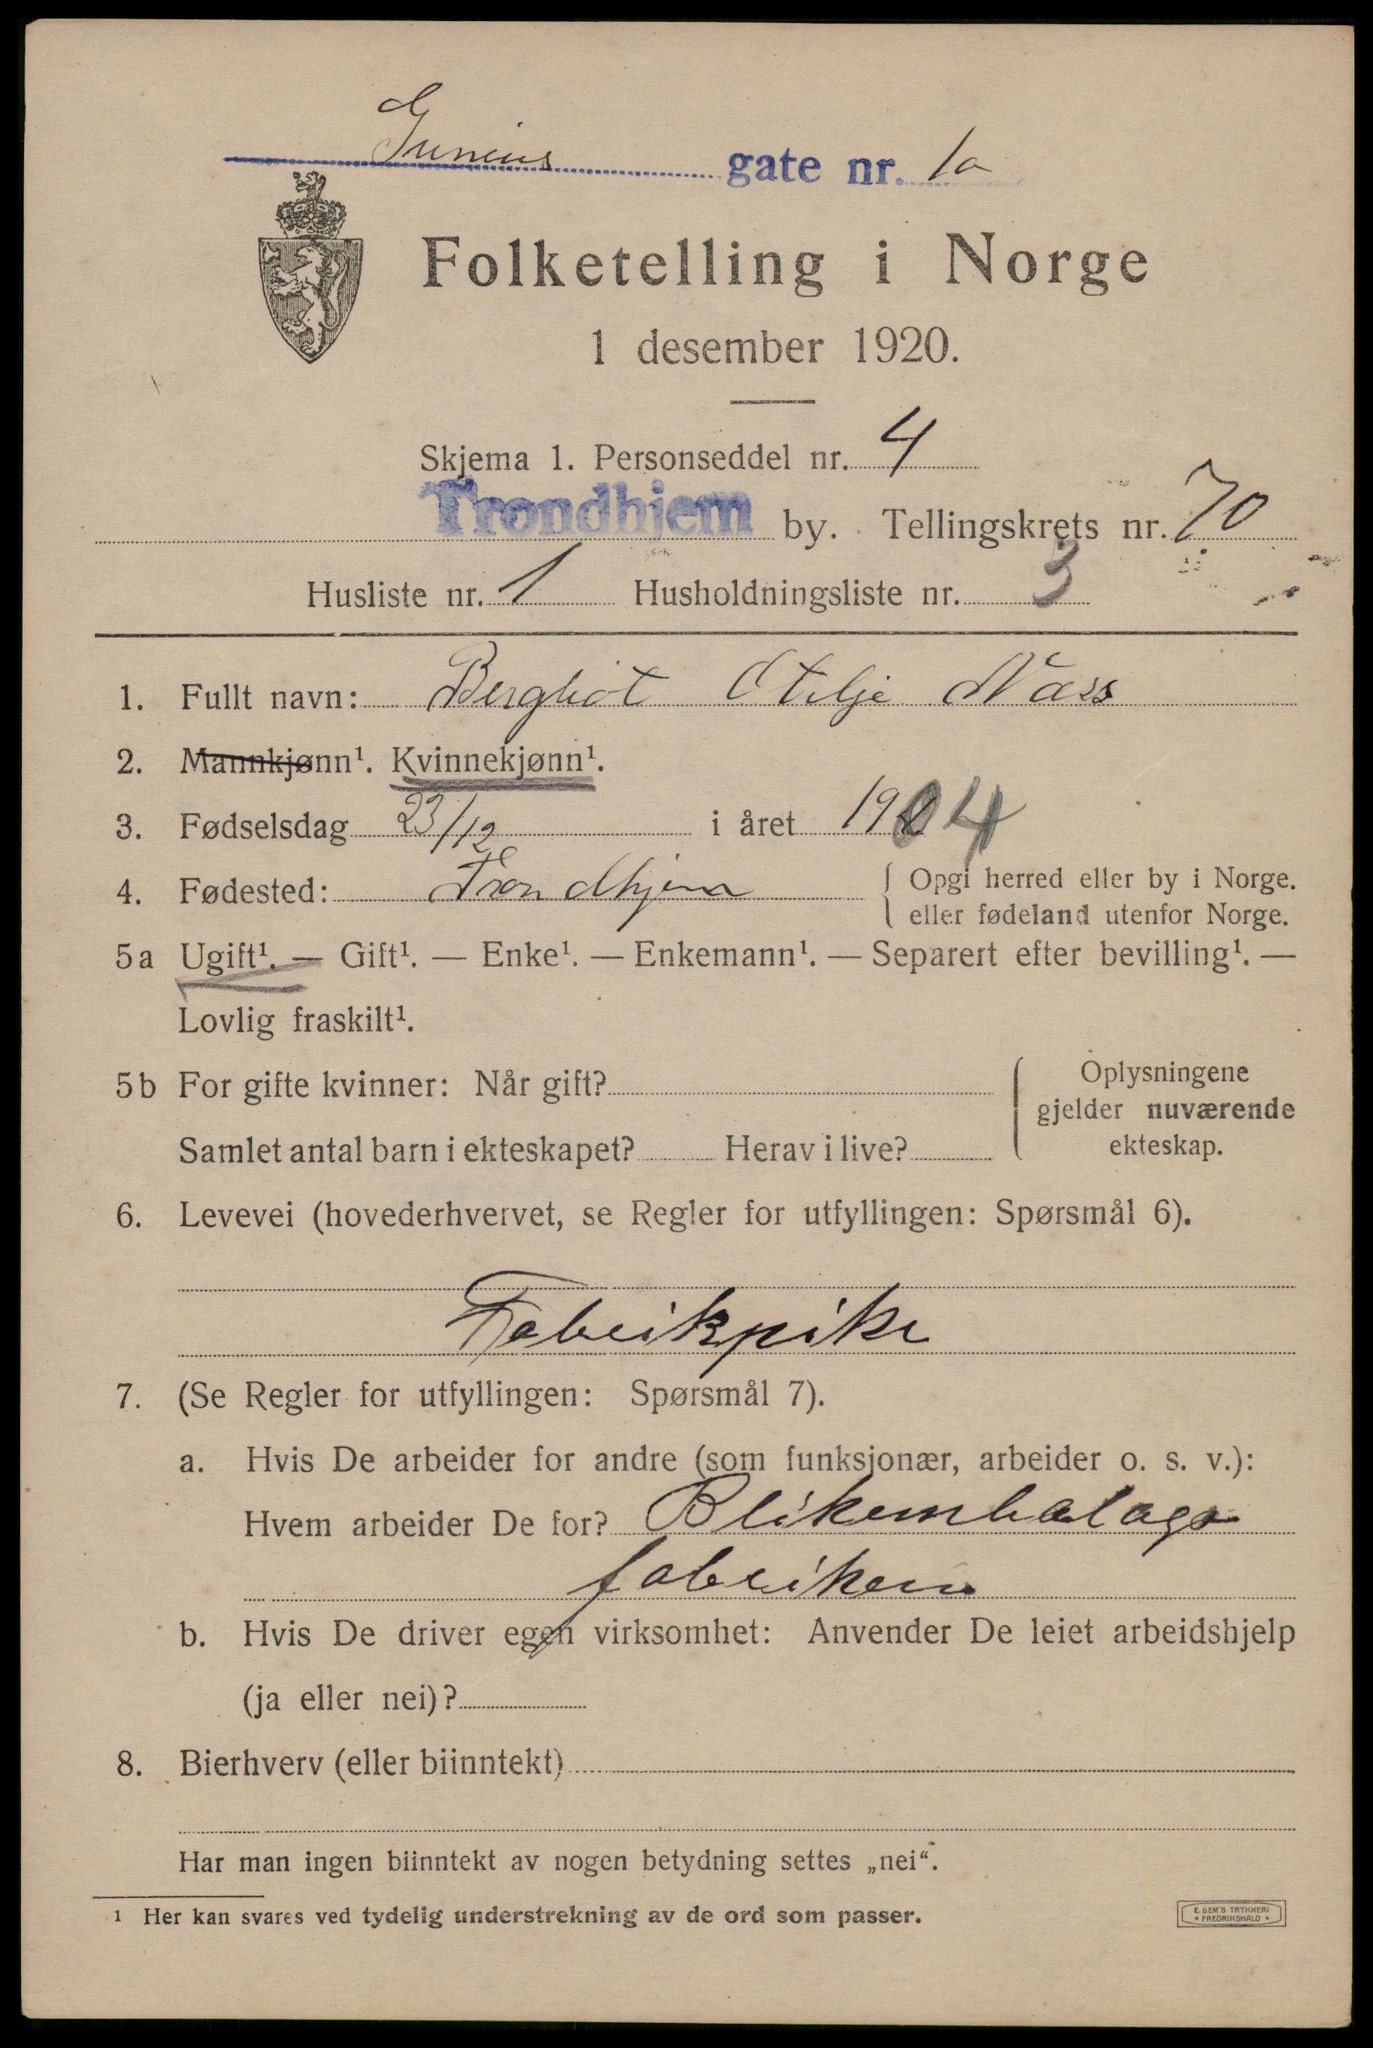 Grunius gate nr. 1a
Folketelling i Norge
1 desember 1920.
Skjema 1. Personseddel nr. 4
Trondhjem by. Tellingskrets nr. 70
Husliste nr. 1 Husholdningsliste nr. 3
1. Fullt navn: Bergliot Otilje Næss
2. Mannkjønn¹. Kvinnekjønn¹.
3. Fødselsdag 23/12 i året 1904
4. Fødested: Trondhjem { Opgi herred eller by i Norge.
eller fødeland utenfor Norge.
5a Ugift¹. — Gift¹. — Enke¹. — Enkemann¹. — Separert efter bevilling¹. —
Lovlig fraskilt¹.
5b For gifte kvinner: Når gift?
Samlet antal barn i ekteskapet? Herav i live?
Oplysningene
gjelder nuværende
ekteskap.
6. Levevei (hovederhvervet, se Regler for utfyllingen: Spørsmål 6).
Fabrikpike
7. (Se Regler for utfyllingen: Spørsmål 7).
a. Hvis De arbeider for andre (som funksjonær, arbeider o. s. v.):
Hvem arbeider De for? Blikembalage
fabriken
b. Hvis De driver egen virksomhet: Anvender De leiet arbeidshjelp
(ja eller nei)?
8. Bierhverv (eller biinntekt)
Har man ingen biinntekt av nogen betydning settes „nei“.
¹ Her kan svares ved tydelig understrekning av de ord som passer.
E. SEM'S TRYKKERI
* FREDRIKSHALD *